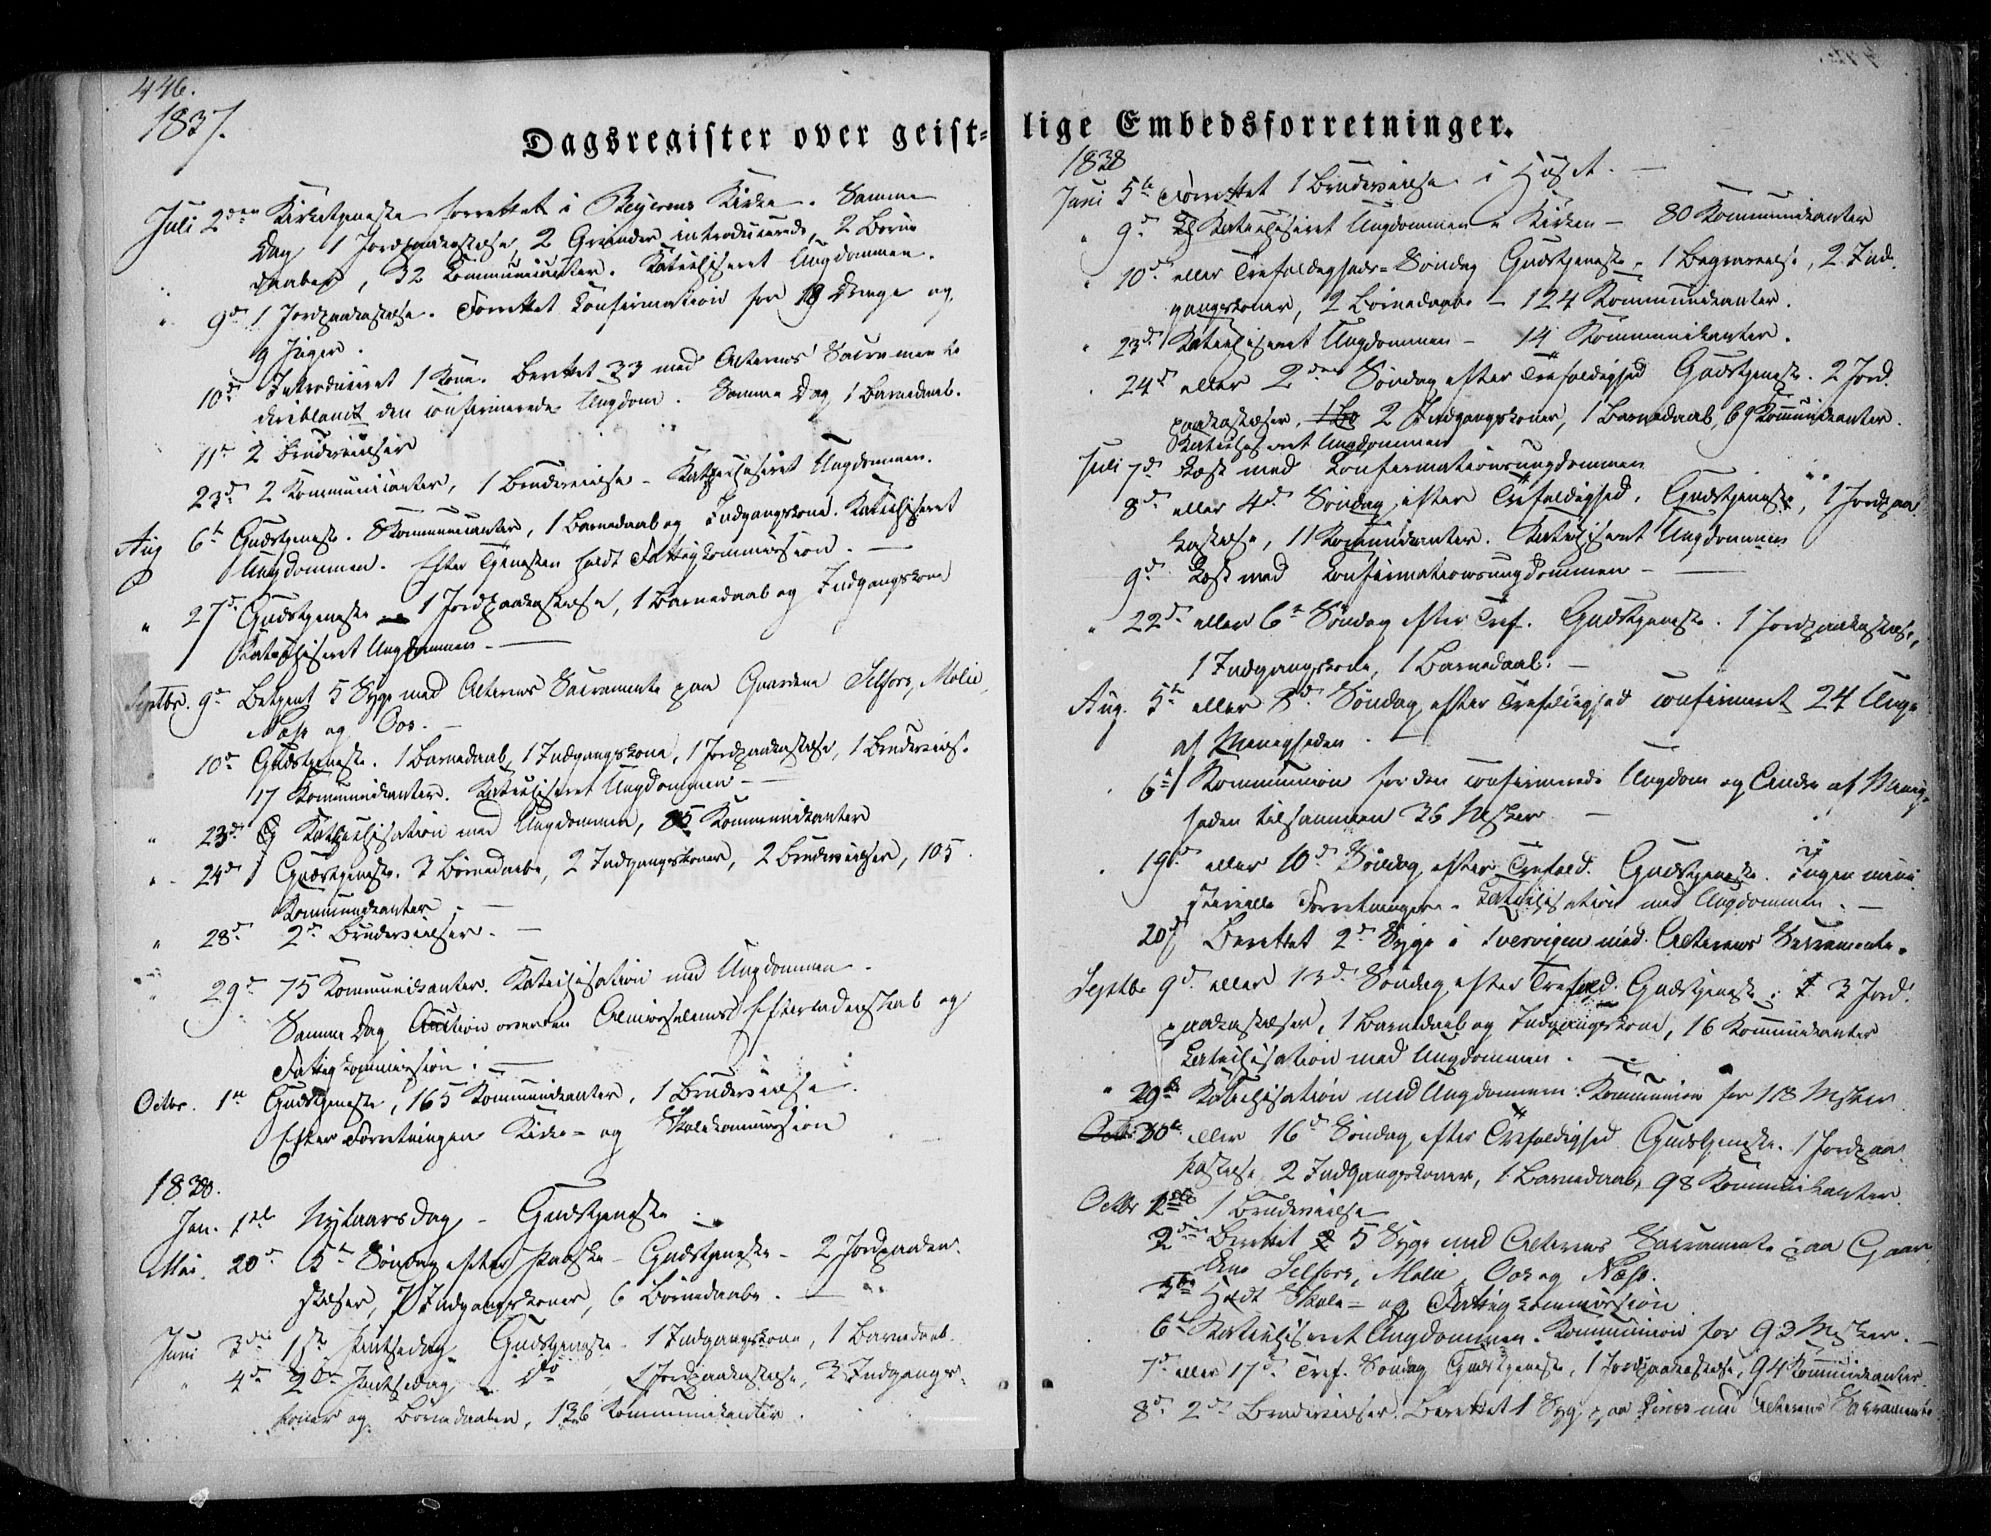 446.
1837.
Dagsregister over geist-
Juli 2den Kirketjeneste forrettet i Beyerens Kirke. Samme
Dag 1 Jordpaakastelse, 2 Qvinder introducerede, 2 Børns
Daaben, 32 Communicanter. Katechiseret Ungdommen.
" 9de 1 Jordpaakastelse. Forrettet Confirmation for 18 Drenge og
9 Piger.
10de Introduceret 1 Kone. Berettet 33 med Alterens Sacramente
deriblandt den confirmerede Ungdom. Samme Dag 1 Barnedaab.
11te 2 Brudevielser
23de 2 Kommunicanter, 1 Brudevielse - Katechiseret Ungdommen.
Aug 6te Gudstjeneste. 8 Kommunicanter, 1 Barnedaab og Indgangskone. Katechiseret
Ungdommen. Efter Tjenesten holdt Fattigkommission.
" 27de Gudstjeneste 1 Jordpaakastelse, 1 Barnedaab og Indgangskone
Katechiseret Ungdommen.
Septbr. 9de Betjent 5 Syge med Alterens Sacramente paa Gaardene Selfors, Molid,
Næss og Oos.
10de Gudstjeneste. 1 Barnedaab, 1 Indgangskone, 1 Jordpaakastelse, 1 Brudevielse.
17 Kommunikanter. Katechiseret Ungdommen
" 23de Katechisation med Ungdommen, 85 Kommunikanter
" 24de Gudstjeneste. 3 Børnedaabe, 2 Indgangskoner, 2 Brudevielser, 105
Kommunikanter.
" 28de 2de Brudevielser.
" 29de 75 Kommunikanter. Katechisation med Ungdommen.
Samme Dag Auction over en Almisselems Efterladenskab og
Fattigkommission.
Octbr. 1ste Gudstjeneste, 165 Kommunikanter, 1 Brudevielse.
Efter Forretningen Kirke- og Skolekommission
1838.
Jan. 1ste Nytaarsdag - Gudstjeneste.
Mai 20de 5te Søndag efter Paaske - Gudstjeneste - 2 Jordpaaka-
stelser, 7 Indgangskoner, 6 Børnedaabe.
Juni 3die 1ste Pintsedag Gudstjeneste. 1 Indgangskone, 1 Barnedaab.
" 4de 2den Pintsedag do, 1 Jordpaakastelse, 3 Indgangs-
koner og Børnedaaben, 136 Kommunikanter.
lige Embedsforretninger.
1838
Juni 5te Forrettet 1 Brudevielse i Huset.
" 9de Katechiseret Ungdommen i Kirken - 80 Kommunikanter
" 10de eller Trefoldigheds-Søndag Gudstjeneste - 1 Begravelse, 2 Ind-
gangskoner, 2 Børnedaabe - 124 Kommunikanter.
" 23de Katechiseret Ungdommen - 14 Kommunikanter.
24de eller 2den Søndag efter Trefoldighed Gudstjeneste. 2 Jord-
paakastelser, 2 Indgangskoner, 1 Barnedaab, 69 Kommunikanter.
Katechiseret Ungdommen
Juli 7de Læst med Confirmationsungdommen
8de eller 4de Søndag efter Trefoldighed. Gudstjeneste, 1 Jordpaa-
kastelse, 11 Kommunikanter. Katechiseret Ungdommen
9de Læst med Confirmationsungdommen -
" 22de eller 6te Søndag efter Tref. Gudstjeneste. 1 Jordpaakastelse,
1 Indgangskone, 1 Barnedaab.
Aug. 5te eller 8de Søndag efter Trefoldighed confirmeret 24 Unge
af Menigheden.
6te Kommunion for den confirmerede Ungdom og Andre af Menig-
heden tilsammen 36 Msker
19de eller 10de Søndag efter Trefold. Gudstjeneste. Ingen mini-
sterielle Forretninger. Catechisation med Ungdommen.
20de Berettet 2de Syge i Tvervigen med Alterens Sacramente.
Septbr 9de eller 13de Søndag efter Trefold. Gudstjeneste. 3 Jord-
paakastelser, 1 Barnedaab og Indgangskone, 16 Kommunikanter
Catechisation med Ungdommen.
" 29de Katechisation med Ungdommen. Kommunion for 118 Msker
Octbr 30te eller 16de Søndag efter Trefoldighed Gudstjeneste. 1 Jordpaa-
kastelse, 2 Indgangskoner, 1 Barnedaab, 98 Kommunikanter
Octbr 1ste 1 Brudevielse
2den Berettet 5 Syge med Alterens Sacramente paa Gaar-
dene Selfors, Molid, Oos og Næss.
5te Holdt Skole- og Fattigkommission
6te Katechiseret Ungdommen. Kommunion for 93 Msker.
7de eller 17de Tref. Søndag Gudstjeneste, 1 Jordpaakastelse, 94 Kommunikanter.
8de 2de Brudevielser. Berettet 1 Syg paa med Alterens Sacramente